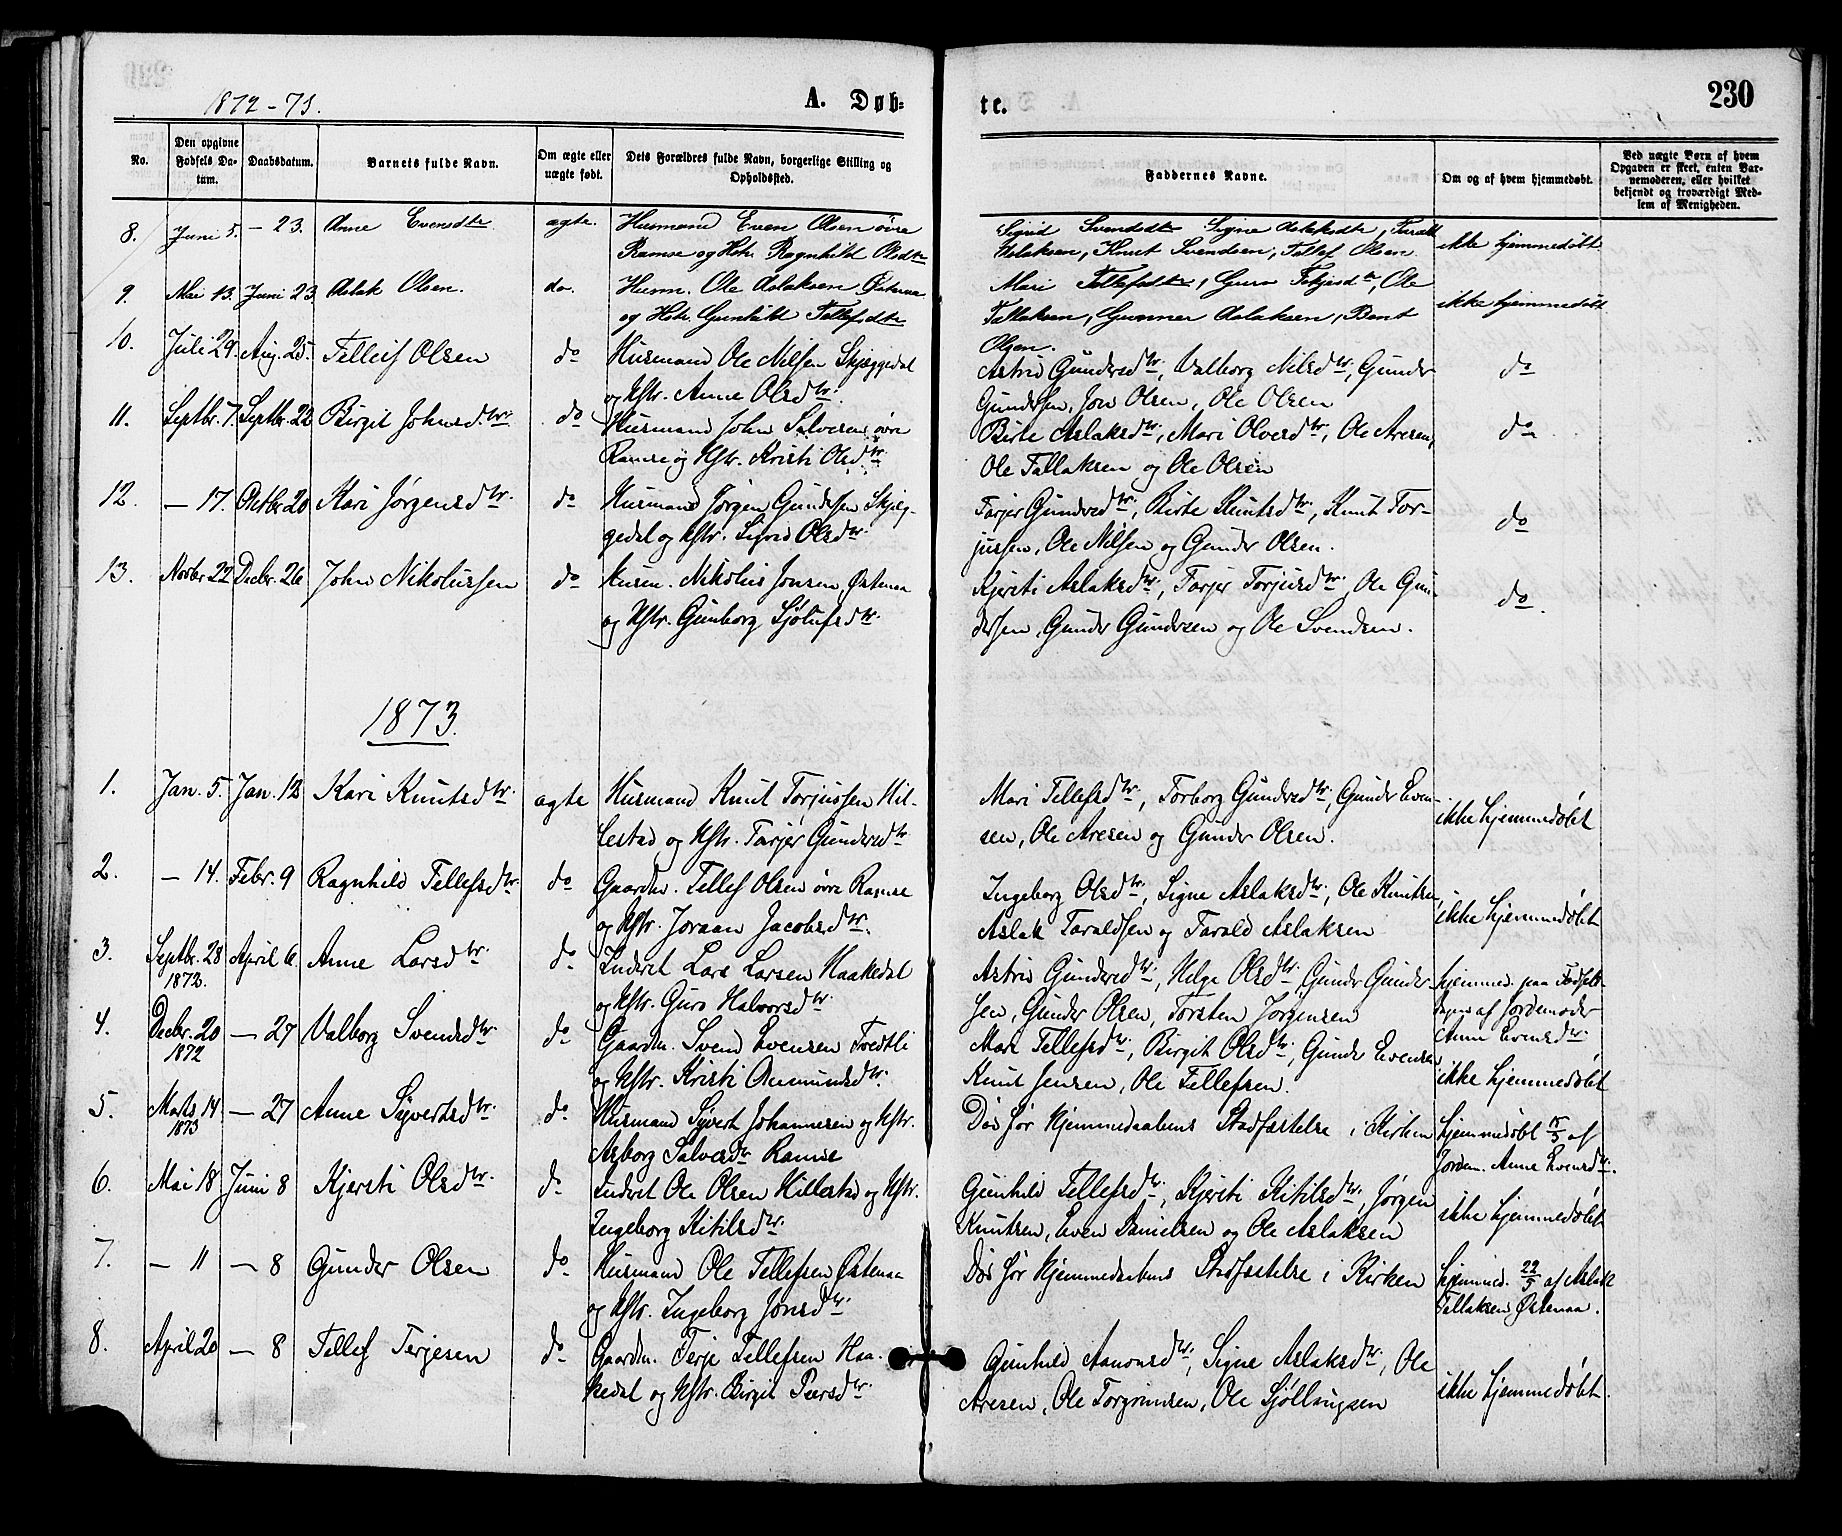 1872-73.
A. Døb=
te.
230
No.
Den opgivne Fødsels Datum.
Daabsdatum.
Barnets fulde Navn.
Om ægte eller uægte født.
Dets Forældres fulde Navn, borgerlige Stilling og Opholdssted.
Faddernes Navne.
Om og af hvem hjemmedøbt.
Ved uægte Børn af hvem Opgaven er skeet, enten Barnemoderen, eller hvilket bekjendt og troværdigt Medlem af Menigheden.
8. Juni 5. — 23. Anne Evensdtr ægte. Husmand Even Olsen øvre Sigrid Svendsdtr Signe Aslaksdtr, Tarald
Ramse og Hstr Ragnhild Olsdtr Aslaksen, Knut Svendsen, Tellef Olsen ikke hjemmedøbt
9. Mai 13. Juni 23. Aslak Olsen. do. Husm. Ole Aslaksen Østenaa Mari Tellefsdtr, Guro Torjusdtr, Ole
og Hstr Gunhild Tellefsdtr Tellaksen, Gunner Aslaksen, Bent ikke hjemmedøbt
Olsen.
10. Juli 29. Aug. 25. Tellef Olsen do Husmand Ole Nilsen Skjeggedal Astrid Gundersdtr, Valborg Nilsdtr, Gunder do
og Hstr. Anne Olsdtr. Gundersen, Jon Olsen, Ole Olsen
11. Septbr. 7. Septbr. 22 Birgit Johnsdtr. do Husmand John Salvesen øvre Birte Aslaksdtr, Mari Olversdtr, Ole Aresen, do.
Ramse og Hstr. Kristi Olsdtr Ole Tallaksen og Ole Olsen
12. — 17. Oktbr 20 Kari Jørgensdtr. do Husmand Jørgen Gundersen Skjeg- Tarjer Gundersdtr, Birte Knutsdtr, Knut Tor- do
gedal og Hstr. Sigrid Olsdtr. jussen, Ole Nilsen og Gunder Olsen.
13. Novbr 22 Decbr. 26 John Nikolussen do Husm. Nikolus Jonsen Østenaa Kjersti Aslaksdtr, Tarjer Torjusdtr, Ole Gun- do.
og Hstr. Gunborg Sjølufsdtr. dersen, Gunder Gundersen og Ole Svendsen.
1873.
1. Jan. 5. Jan. 12 Kari Knutsdtr. ægte Husmand Knut Torjussen Hil- Mari Tellefsdtr, Torborg Gundersdtr, Gunder Even- ikke hjemmedøbt
lestad og Hstr. Tarjer Gundersdtr sen, Ole Aresen og Gunder Olsen.
2. — 14. Febr. 9 Ragnhild Tellefsdtr do Gaardm. Tellef Olsen øvre Ramse Ingeborg Olsdtr, Signe Aslaksdtr, Ole Knutsen, ikke hjemmedøbt
og Hstr. Joraan Jacobsdtr. Aslak Taraldsen og Tarald Aslaksen
3. Septbr. 28 1872. April 6. Anne Larsdtr. do Inderst Lars Larsen Haakedal Astrid Gundersdtr, Helge Olsdtr, Gunder Gunder- hjemmed. paa Fødsels-
og Hstr. Guro Halvorsdtr. sen, Gunder Olsen, Torsten Jørgensen dagen af Jordemoder
Anne Evensdtr.
4. Decbr. 20 1872 — 27 Valborg Svendsdtr do Gaardm. Svend Evensen Tredtli Mari Tellefsdtr, Birgit Olsdtr, Gunder Evensen
og Hstr. Kristi Aamundsdtr. Knut Jensen, Ole Tellefsen. ikke hjemmedøbt
5. Marts 14. 1873 — 27 Anne Syvertsdtr do Husmand Syvert Johannesen og Hstr. Død før Hjemmedaabens Stadfæstelse i Kirken hjemmedøbt 15/3 af
Asborg Salvesdtr Ramse Jordem. Anne Evensdtr.
6. Mai 18 Juni 8 Kjersti Olsdtr. do Inderst Ole Olsen Hillestad og Hstr. Gunhild Tellefsdtr, Kjersti Kitilsdtr, Jørgen ikke hjemmedøbt
Ingeborg Kitilsdtr Knutsen, Even Danielsen og Ole Aslaksen
7. — 11 — 8 Gunder Olsen do Husmand Ole Tellefsen Østenaa Død før Hjemmedaabens Stadfæstelse i Kirken hjemmed. 22/5 af Aslak
og Hstr. Ingeborg Jonsdtr. Tellaksen Østenaa.
8. April 20 — 8 Tellef Terjesen do Gaardm. Terje Tellefsen Haa- Gunhild Aanonsdtr, Signe Aslaksdtr, Ole ikke hjemmedøbt.
kedal og Hstr. Birgit Pærsdtr. Aresen, Ole Torgrimsen, Ole Sjøllingsen